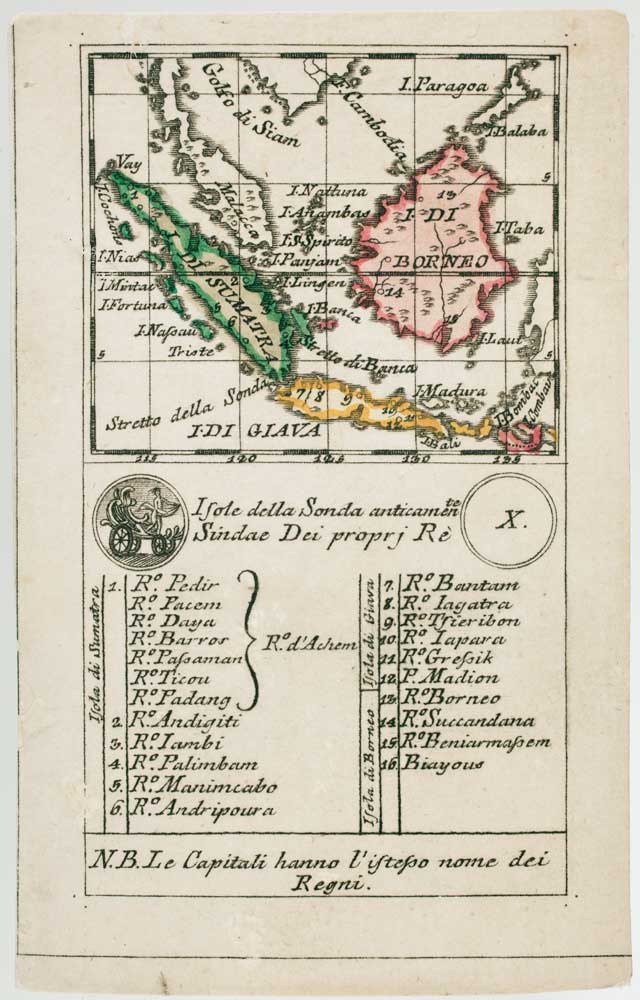 Golfo di Siam
F. Cambodia
I. Paragoa
I. Balaba
Vay
Malacca
I. Cochons
I. Nattuna
I. Anambas
I. S. Spirito
I. Panjam
I. Lingen
I. Banca
I. DI SUMATRA
I. Nias
I. Mintac
I. Fortuna
I. Nassau
Triste
13
I. DI
BORNEO
14
15
I. Taba
I. Laut
5
5
5
Stretto di Banca
Stretto della Sonda
I. DI GIAVA
7 8 9 10
12 11
I. Madura
I. Bali
I. Bombac
115 120 125 130 135
Isole della Sonda anticamente
Sindae Dei proprj Rè
X.
Isola di Sumatra
1. R.º Pedir
R.º Pacem
R.º Daya
R.º Barros
R.º Passaman
R.º Ticou
R.º Padang
R.º d'Achem
2. R.º Andigiti
3. R.º Iambi
4. R.º Palimbam
5. R.º Manimcabo
6. R.º Andripoura
Isola di Giava
7. R.º Bantam
8. R.º Iagatra
9. R.º Tsieribon
10. R.º Iapara
11. R.º Gressik
12. P. Madion
Isola di Borneo
13. R.º Borneo
14. R.º Succandana
15. R.º Beniarmassem
16. Biayous
N.B. Le Capitali hanno l'istesso nome dei
Regni.